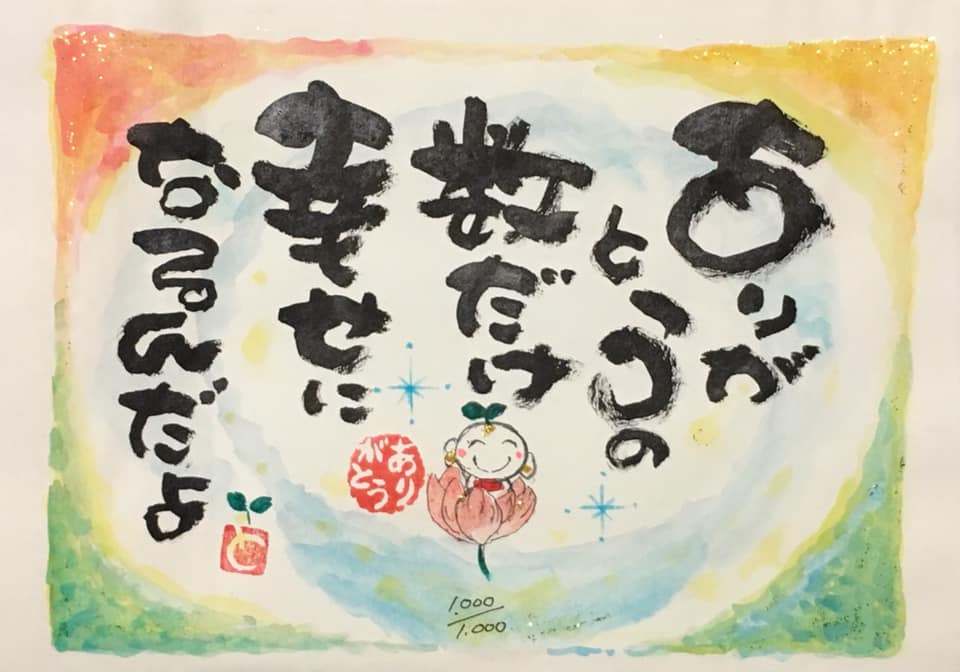 ありが
とうの
数だけ
幸せに
なるんだよ
あり
がとう
と
1.000
1.000